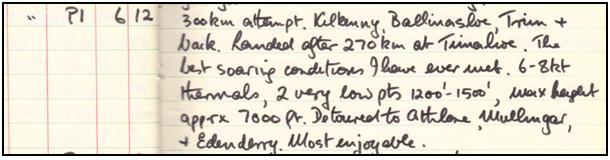 " P1 6 12 300km attempt. Kilkenny, Ballinasloe, Trim +
back. Landed after 270km at Timahoe. The
best soaring conditions I have ever met. 6-8kt
thermals, 2 very low pts 1200'-1500', max height
apprx 7000 ft. Detoured to Athlone, Mullingar,
+ Edenderry. Most enjoyable.